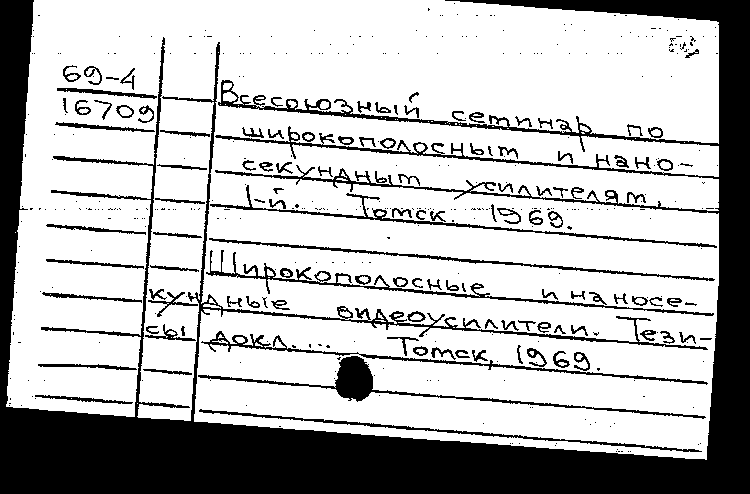 69-4
16709
Всесоюзный семинар по
широкополосным и нано-
секундным усилителям.
1-й. Томск. 1969.
Широкополосные и наносе-
кундные видеоусилители. Тези-
сы докл. ... Томск, 1969.